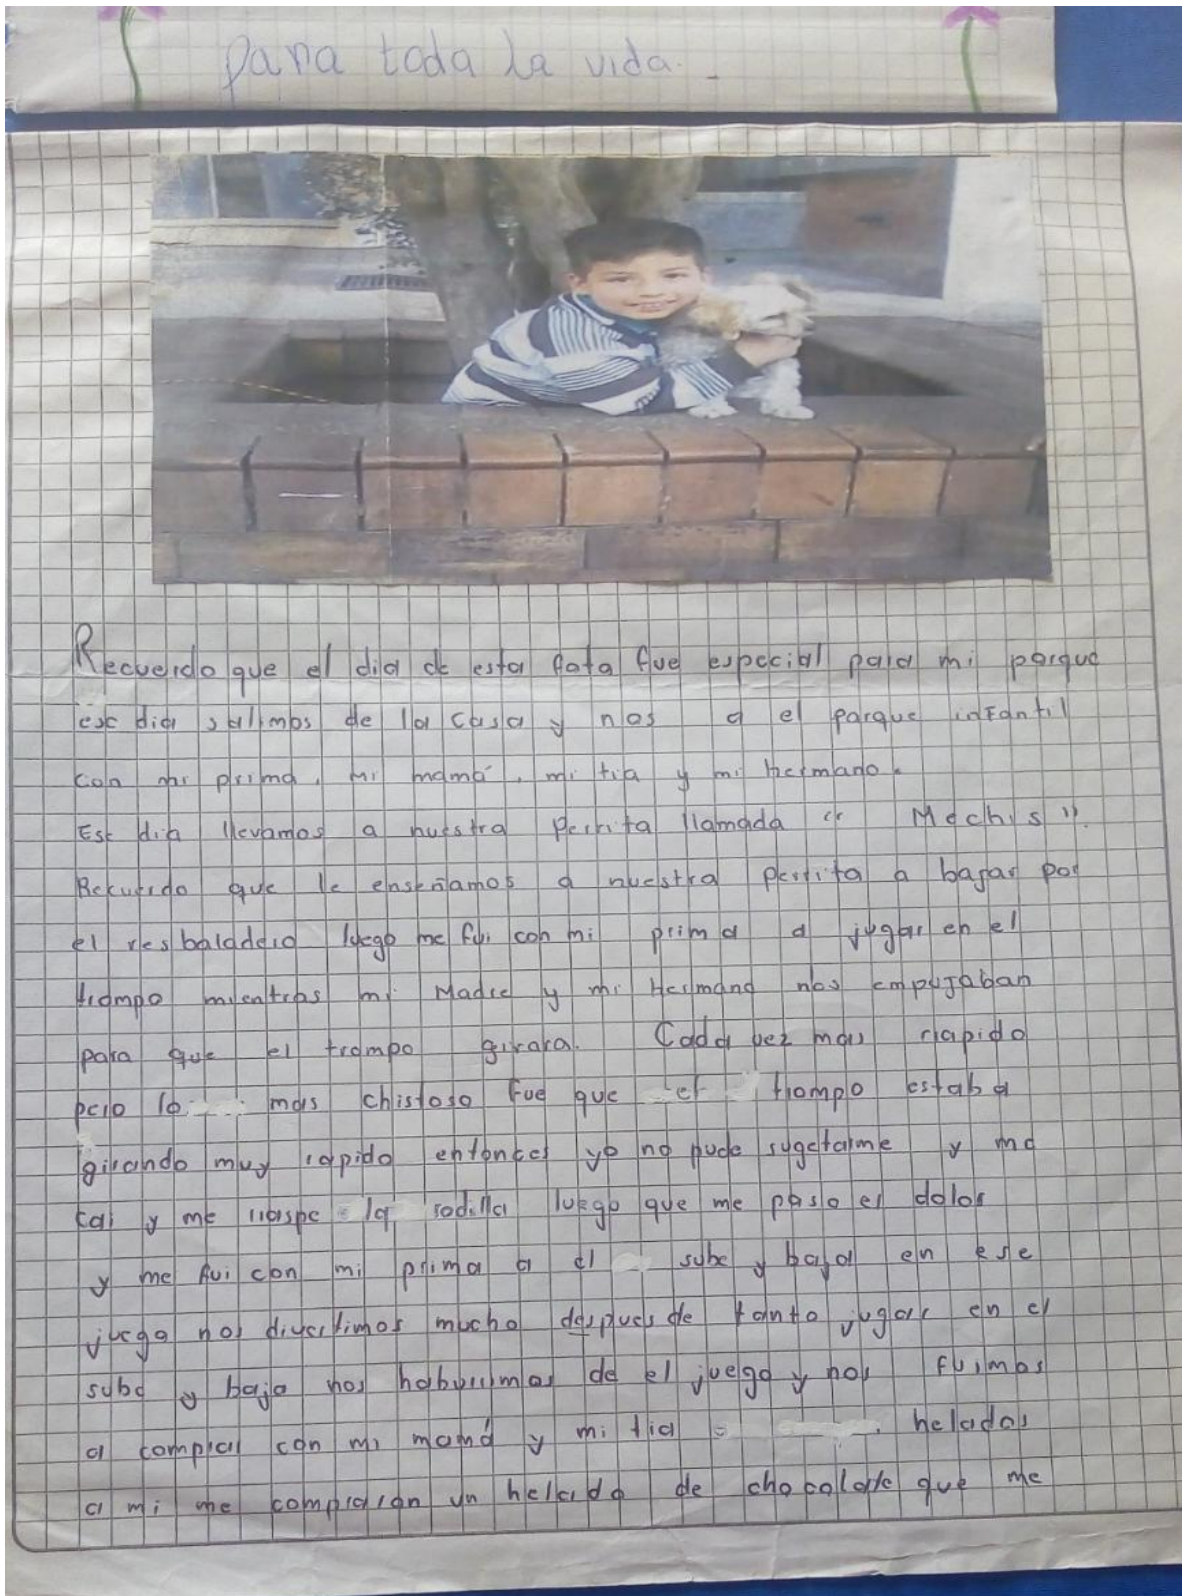 para toda la vida.
Recuerdo que el dia de esta foto fue especial para mi porque
ese dia salimos de la casa y nos a el parque infantil
con mi prima, mi mamá, mi tia y mi hermano.
Ese dia llevamos a nuestra perrita llamada " Mechis ".
Recuerdo que le enseñamos a nuestra perrita a bajar por
el resbaladero luego me fui con mi prima a jugar en el
trompo mientras mi Madre y mi Hermano nos empujaban
para que el trompo girara. Cada vez mas rapido
pero lo mas chistoso fue que el trompo estaba
girando muy rapido entonces yo no pude sugetarme y me
cai y me raspe la rodilla luego que me paso el dolor
y me fui con mi prima a el sube y baja en ese
juego nos divertimos mucho despues de tanto jugar en el
sube y baja nos de el juego y nos fuimos
a comprar con mi mamá y mi tia helados
a mi me compraron un helado de chocolate que me